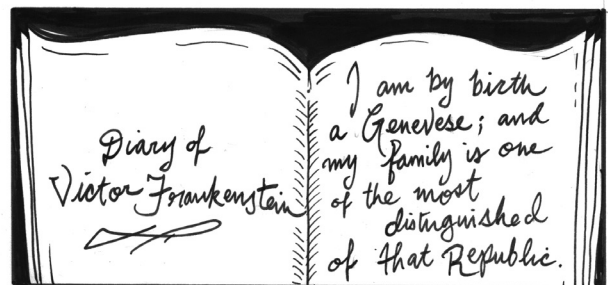 Diary of
Victor Frankenstein
I am by birth
a Genevese; and
my family is one
of the most
distinguished
of that Republic.